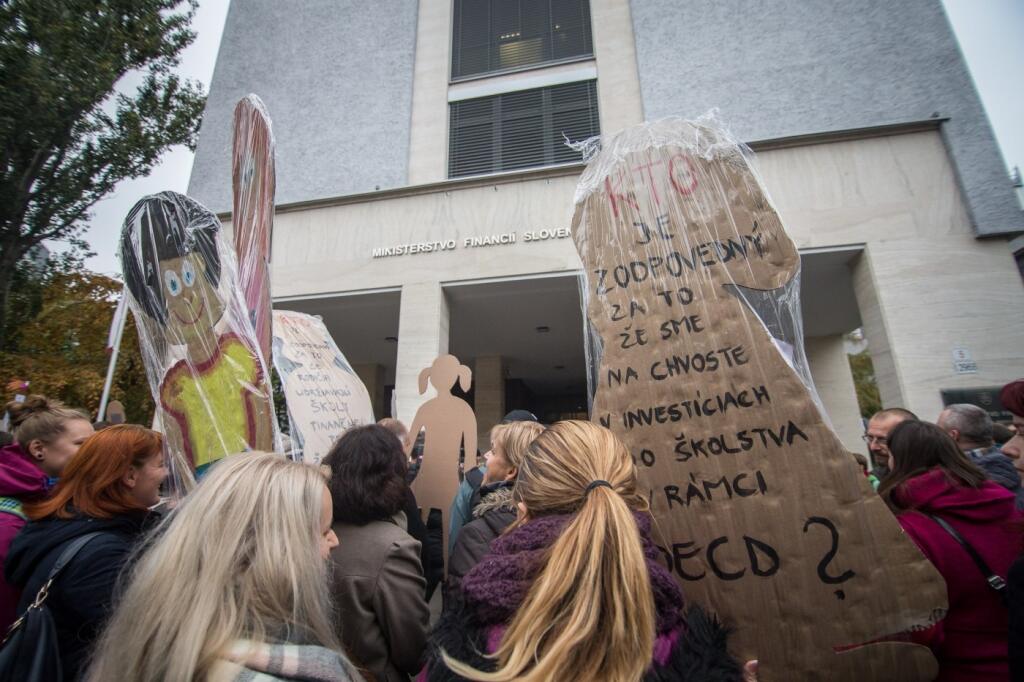 MINISTERSTVO FINANCIÍ SLOVEN
KTO
JE
ZODPOVEDNÝ
ZA TO
ŽE SME
NA CHVOSTE
V INVESTÍCIACH
DO ŠKOLSTVA
V RÁMCI
OECD?
ZA TO
ŽE
RODIČIA
ŠKOLY